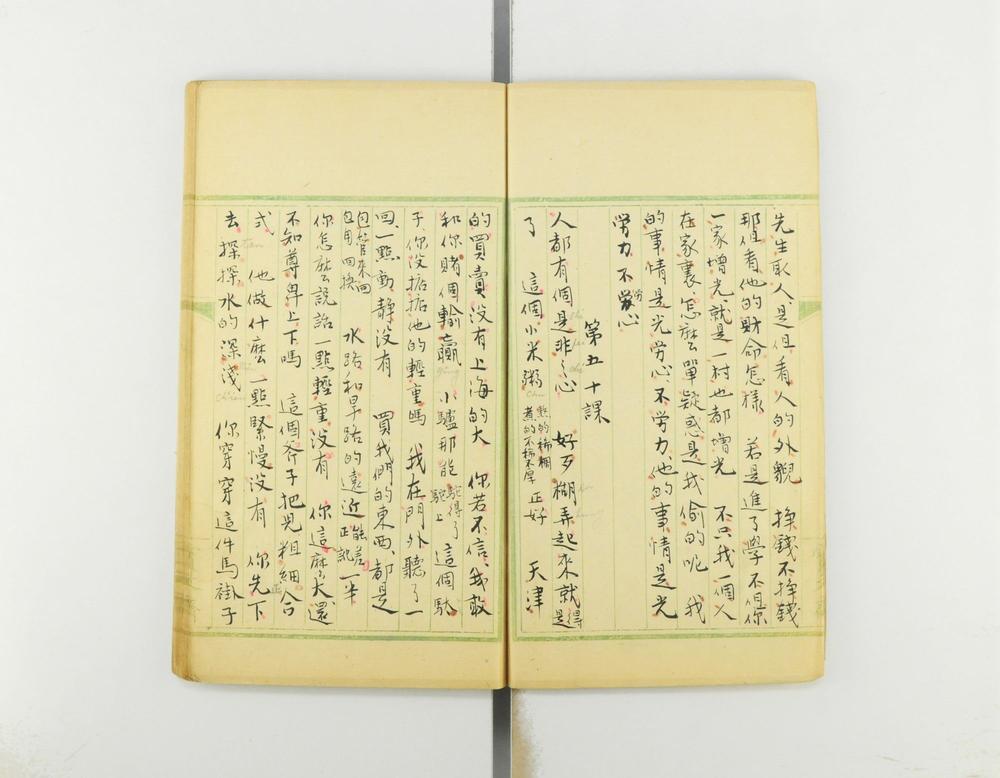 先生取人是但看人的外貌 掙錢不掙錢
那但看他的財命怎樣 若是進了學不但你
一家增光、就是一村也都增光 不只我一個人
在家裏、怎麼單疑惑是我偷的呢 我
的事情是光勞心不勞力、他的事情是光
勞力不勞心
第五十課
人都有個是非之心 好歹糊弄起來就得
是
了 這個小米粥煮的不稀不厚正好 天津
點的稀稠
的買賣沒有上海的大 你若不信、我敢
和你賭個輸贏 小驢那能駝得了這個馱
駝上
子、你沒掂掂他的輕重嗎 我在門外聽了一
回、一點動靜沒有 買我們的東西、都是
包管來回
包用回換 水路和旱路的遠近能差一半
正就
你怎麼說話一點輕重沒有 你這麼大、還
不知尊卑上下嗎 這個斧子把兒粗細合
式 他做什麼一點緊慢沒有 你先下
去探探水的深淺 你穿穿這件馬褂子